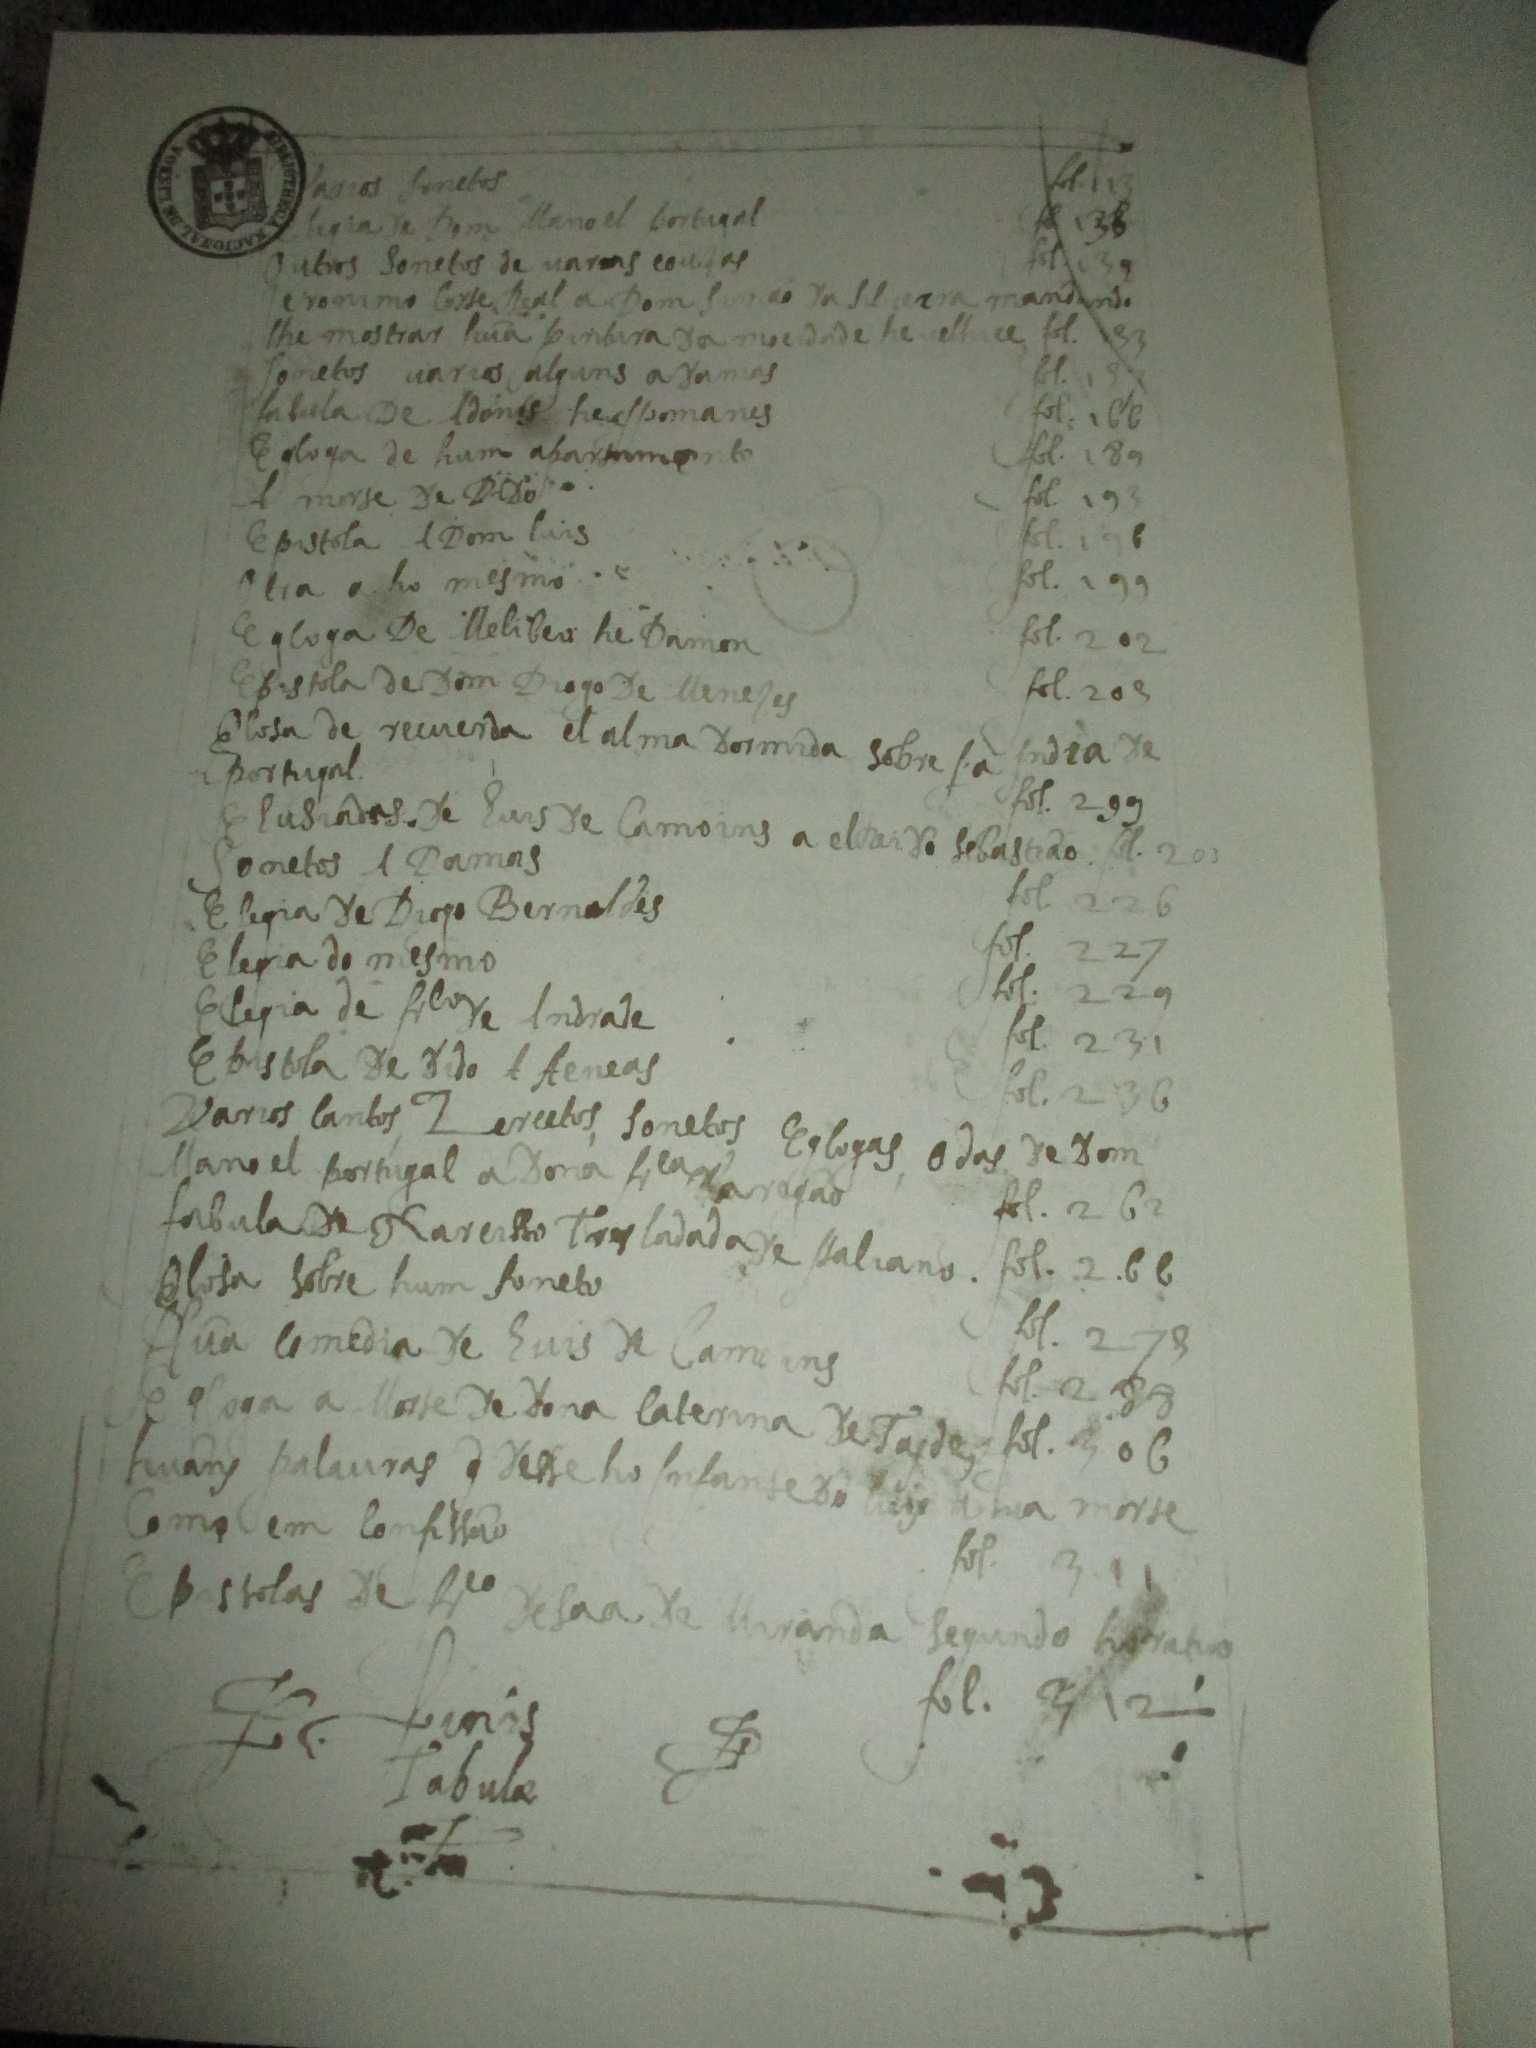 BIBLIOTHECA NACIONAL DE LISBOA
Varios sonetos fol. 113
Elegia de Dom Manoel Portugal fol. 138
Outros sonetos de varias cousas fol. 139
Jeronimo Corte Real a Dom da mandando
lhe mostrar hũa pintura da mocidade he velhice fol. 153
sonetos varios alguns a damas fol.
fabula De Adonis he fol. 166
Egloga de hum apartamento fol. 189
A morte de Dido fol. 193
Epistola A Dom luis fol. 196
Otra a ho mesmo fol. 199
Egloga De Melibeo he Damon fol. 202
Epistola de Dom Diogo De Menezes fol. 205
Glosa de recuerda el alma dormida sobre a India de
portugal. fol. 299
Elusiadas de Luis de Camoins a elRei do sebastião. fol. 203
Sonetos A Damas fol. 226
Elegia de Diogo Bernaldes fol. 227
Elegia do mesmo fol. 229
Elegia de frco de Andrade fol. 231
Epistola de dido A Aeneas fol. 236
Varios Cantos, Tercetos, sonetos Eglogas, odas de dom
Manoel portugal a dona frca daragão fol. 262
fabula de Narcisso Tresladada de Italiano. fol. 266
Glosa sobre hum soneto fol. 278
Hũa comedia de Luis de Camoins fol. 288
Egloga a Morte de dona Caterina de Taide fol. 306
huãs palauras q disse ho Infante do luis a sua morte
Como em confissão fol. 311
Epistolas de frco desaa de Miranda segundo horatio
fol. 312
Finis
Tabulæ